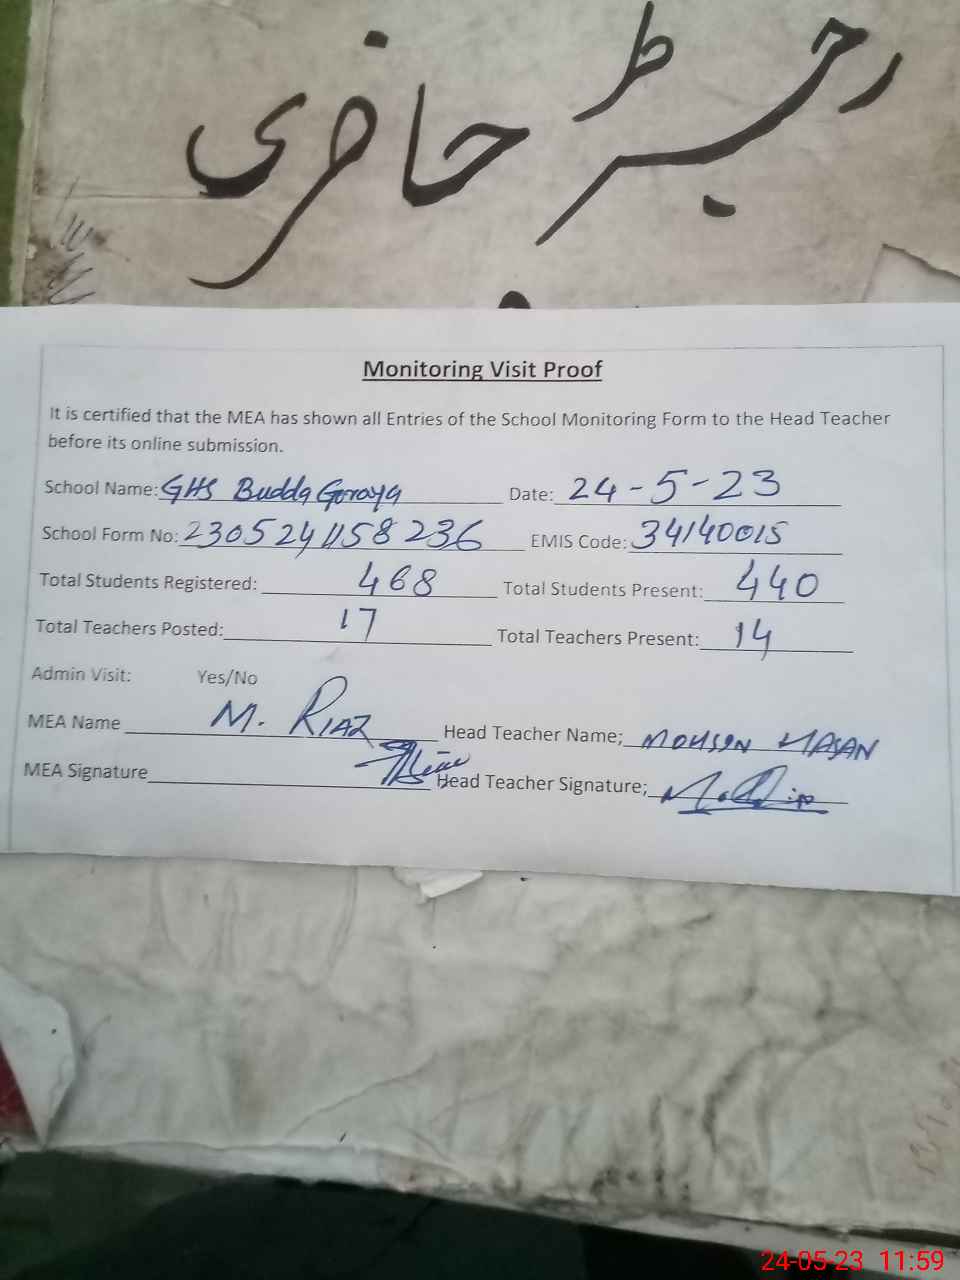 رجسٹر حاضری
Monitoring Visit Proof
It is certified that the MEA has shown all Entries of the School Monitoring Form to the Head Teacher
before its online submission.
School Name: GHS Budda Goraya Date: 24-5-23
School Form No: 2305241158236 EMIS Code: 34140015
Total Students Registered: 468 Total Students Present: 440
Total Teachers Posted: 17 Total Teachers Present: 14
Admin Visit: Yes/No
MEA Name M. RIAZ Head Teacher Name; MOHSIN HASAN
MEA Signature Head Teacher Signature;
24-05-23 11:59